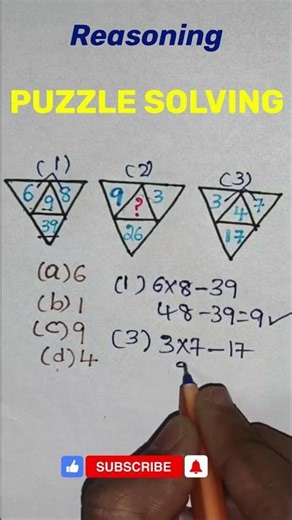 Reasoning
PUZZLE SOLVING
(1)
(2)
(3)
6 9 8
39
9 ? 3
26
3 4 7
17
(a) 6
(b) 1
(c) 9
(d) 4
(1) 6x8-39
48-39=9✓
(3) 3x7-17
SUBSCRIBE